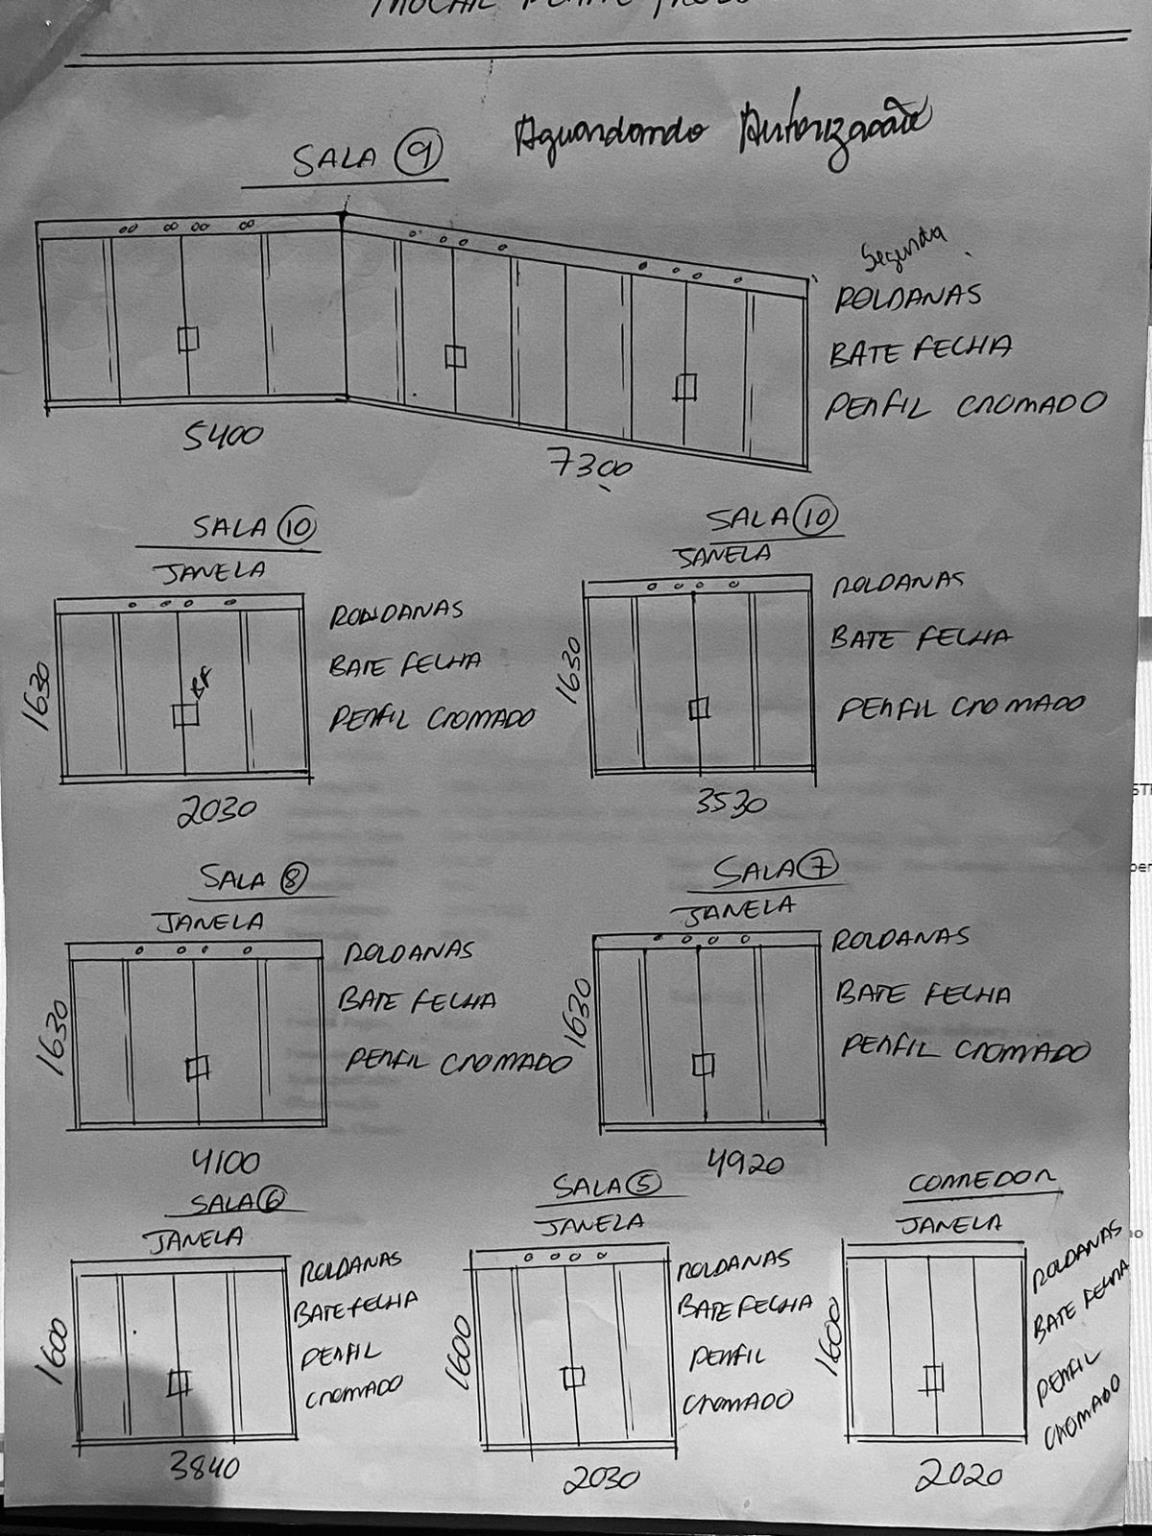 Aguardando Autorização
SALA 9
Segunda
ROLDANAS
BATE FECHA
PERFIL CROMADO
5400
7300
SALA 10
JANELA
1630
BF
ROLDANAS
BATE FECHA
PERFIL CROMADO
2030
SALA 10
JANELA
1630
ROLDANAS
BATE FECHA
PERFIL CROMADO
3530
SALA 8
JANELA
1630
ROLDANAS
BATE FECHA
PERFIL CROMADO
4100
SALA 7
JANELA
1630
ROLDANAS
BATE FECHA
PERFIL CROMADO
4920
SALA 6
JANELA
1600
ROLDANAS
BATE FECHA
PERFIL
CROMADO
3840
SALA 5
JANELA
1600
ROLDANAS
BATE FECHA
PERFIL
CROMADO
2030
CORREDOR
JANELA
1600
ROLDANAS
BATE FECHA
PERFIL
CROMADO
2020